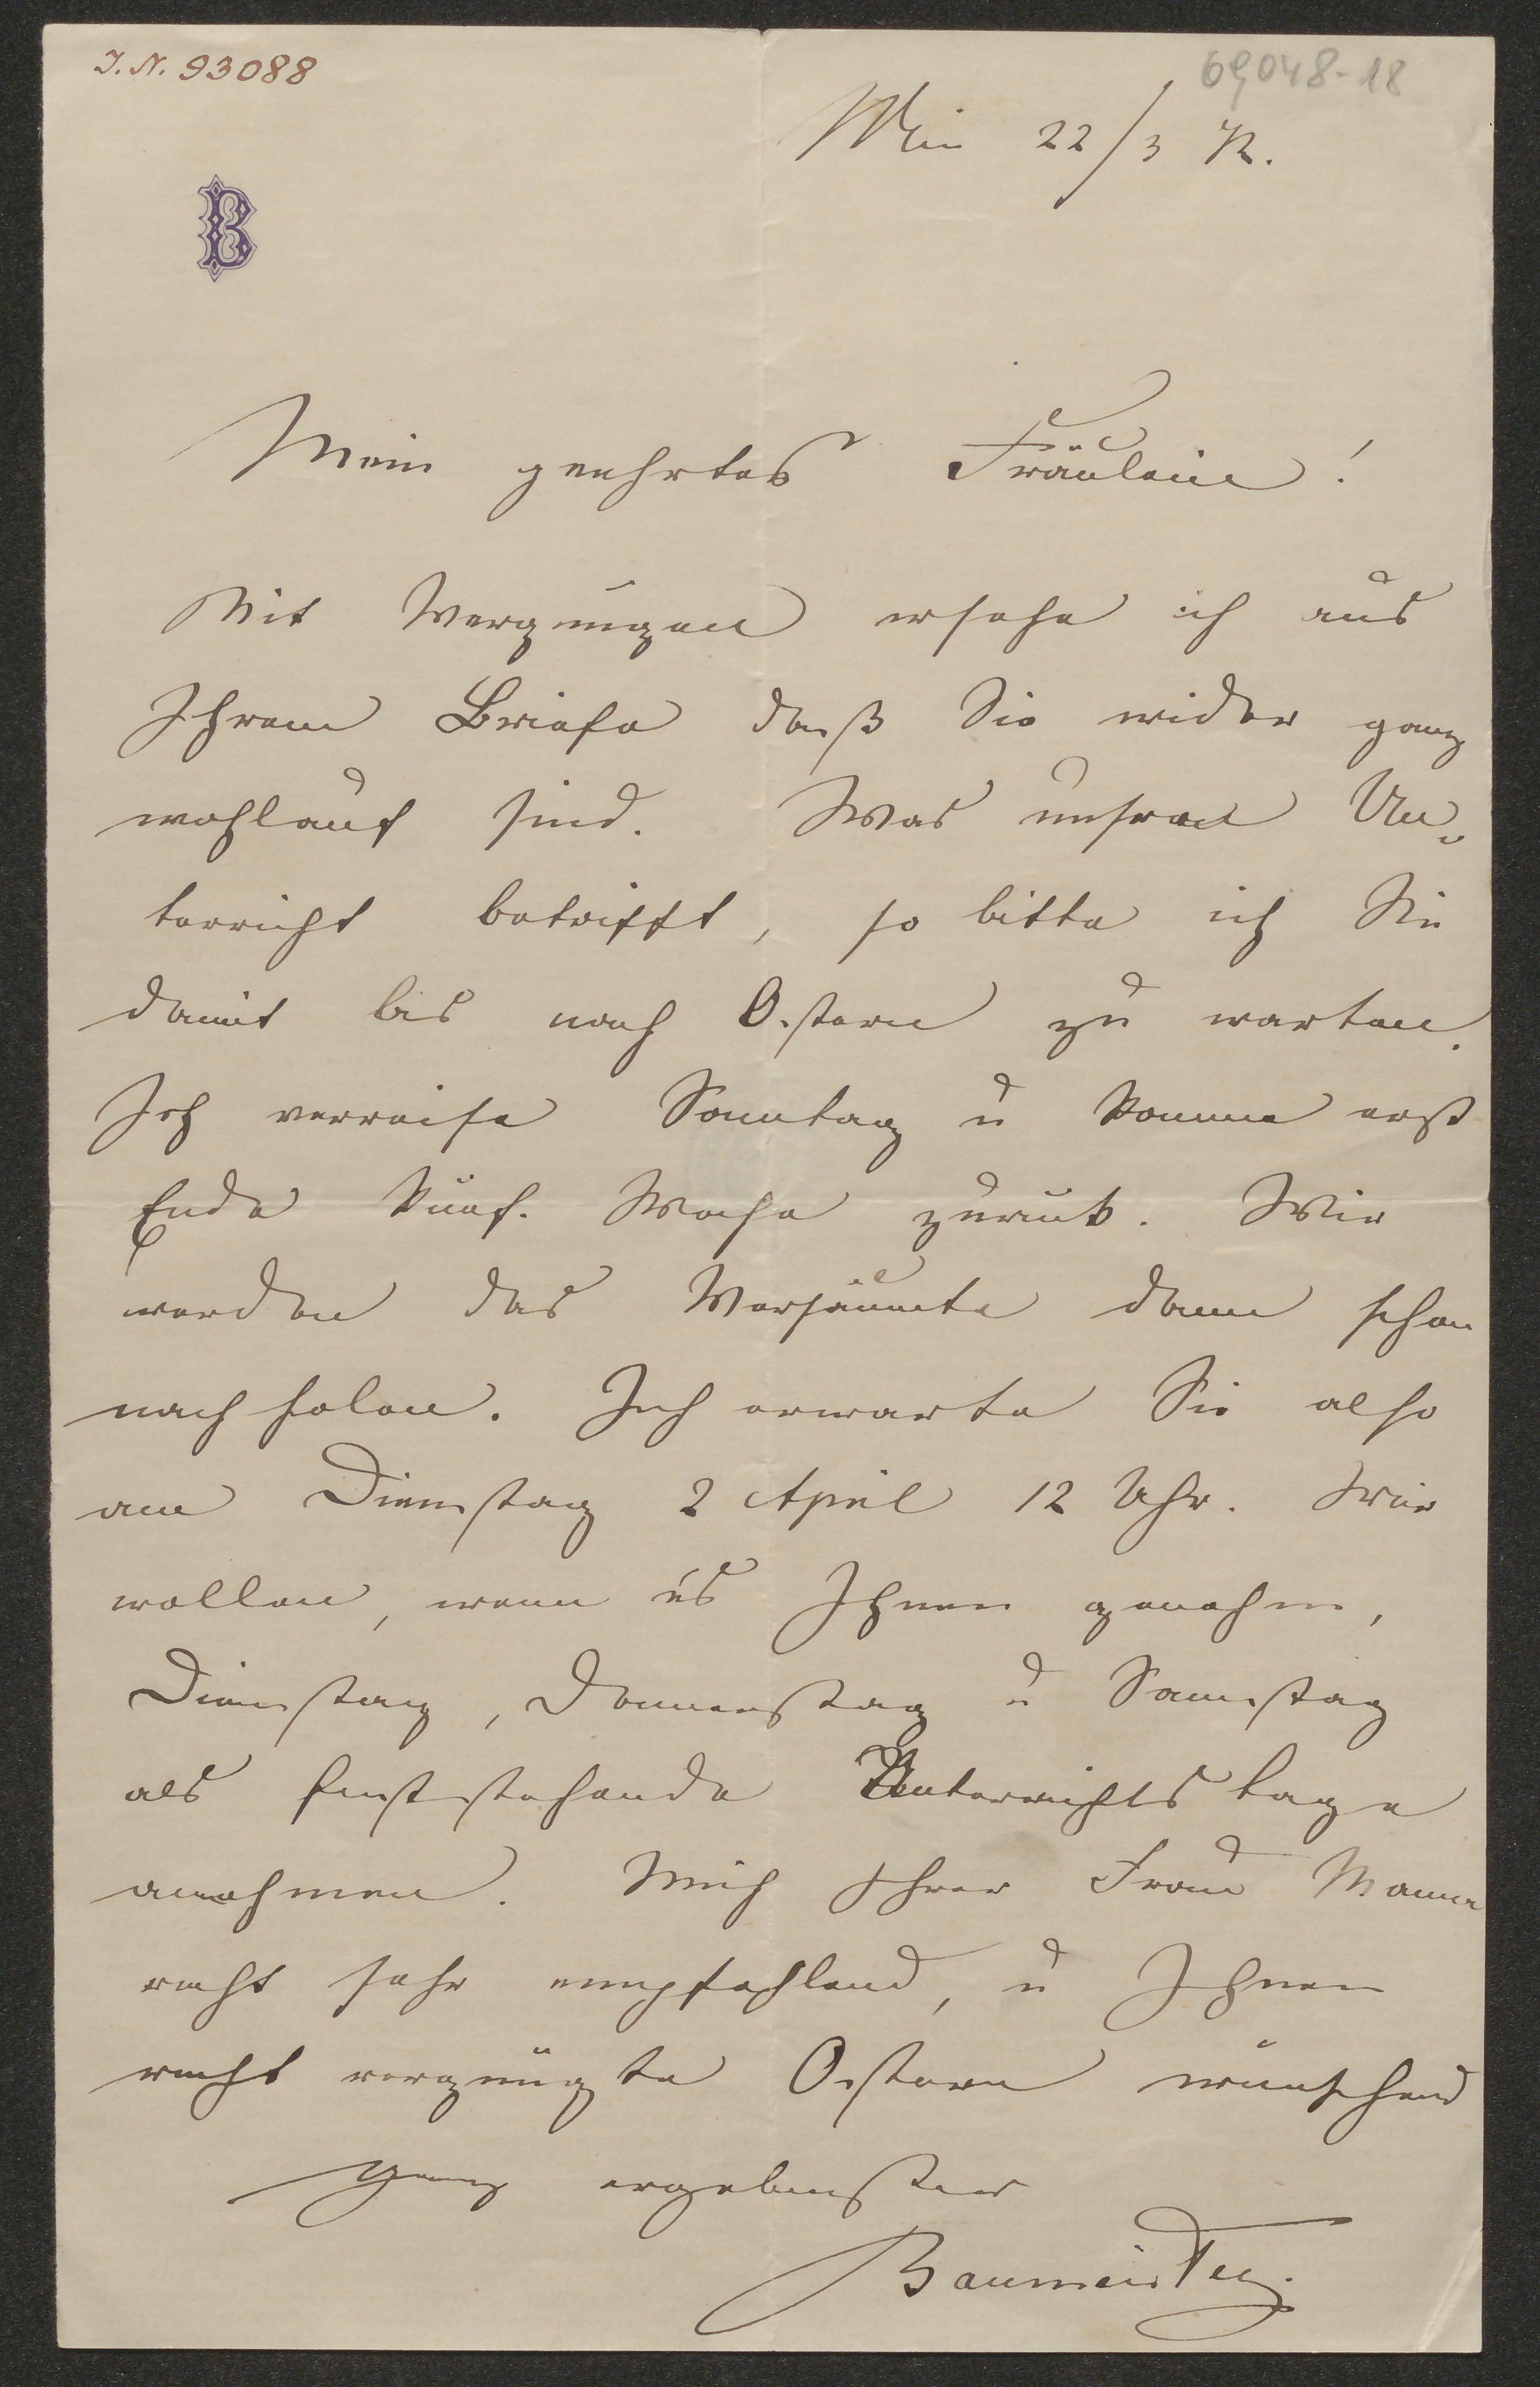 I. N. 93088
69048-18
Wien 22/3 72.
B
Mein geehrtes Fräulein!
Mit Vergnügen ersehe ich aus
Ihrem Briefe daß Sie wider ganz
wohlauf sind. Was unsren Un-
terricht betrifft, so bitte ich Sie
damit bis nach Ostern zu warten.
Ich verreise Sonntag u komme erst
Ende künf. Woche zurück. Wir
werden das Versäumte dann schon
nachholen. Ich erwarte Sie also
am Dienstag 2 April 12 Uhr. Wir
wollen, wenn es Ihnen genehm,
Dienstag, Donnerstag u Samstag
als feststehende Unterrichtstage
annehmen. Mich Ihrer Frau Mama
recht sehr empfehlend, u Ihnen
recht vergnügte Ostern wünschend
ganz ergebenster
Baumeister